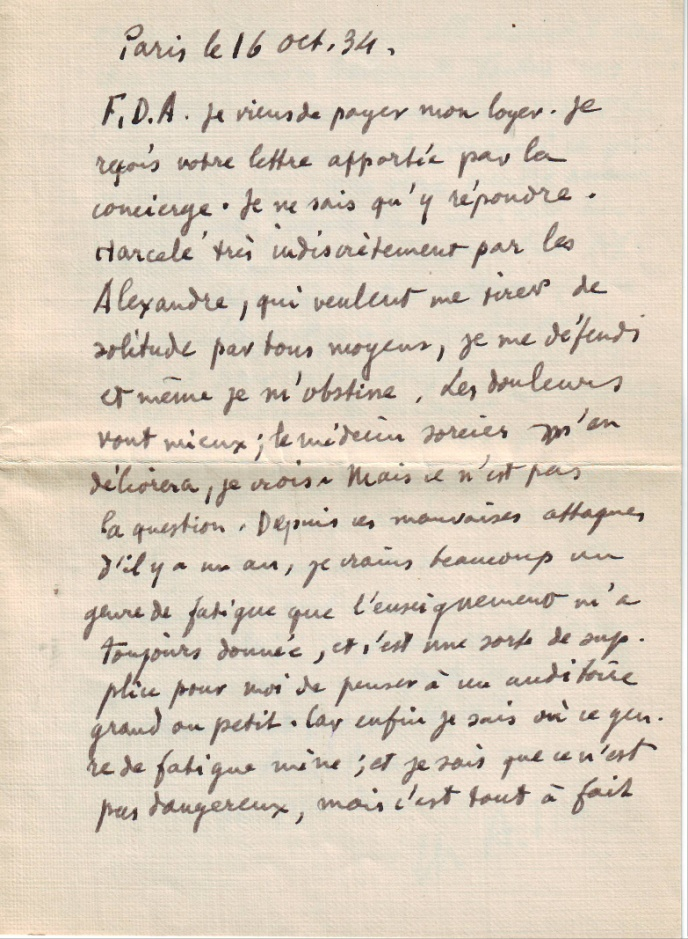 Paris le 16 oct. 34.
F.D.A. Je viens de payer mon loyer. Je
reçois votre lettre apportée par la
concierge. Je ne sais qu'y répondre.
Harcelé très indiscrètement par les
Alexandre, qui veulent me tirer de
solitude par tous moyens, je me défends
et même je m'obstine. Les douleurs
vont mieux ; le médecin sorcier m'en
délivrera, je crois. Mais ce n'est pas
la question. Depuis ces mauvaises attaques
d'il y a un an, je crains beaucoup un
genre de fatigue que l'enseignement m'a
toujours donnée, et c'est une sorte de sup-
plice pour moi de penser à un auditoire
grand ou petit. Car enfin je sais où ce gen-
re de fatigue mène ; et je sais que ce n'est
pas dangereux, mais c'est tout à fait